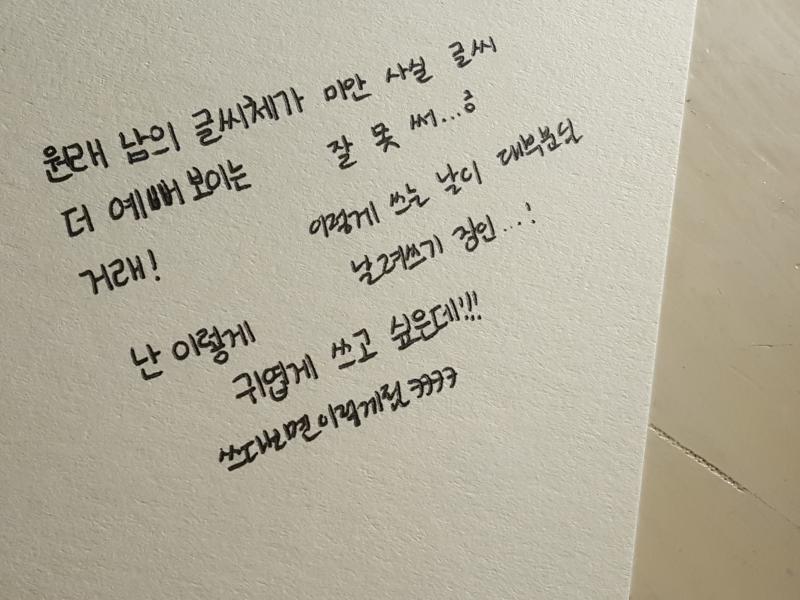 원래 남의 글씨체가
더 예뻐 보이는
거래!
미안 사실 글씨
잘 못 써...ㅎ
이렇게 쓰는 날이 대부분
날려쓰기 장인...!
난 이렇게
귀엽게 쓰고 싶은데!!!
쓰다보면 이렇게됨 ㅋㅋㅋㅋ